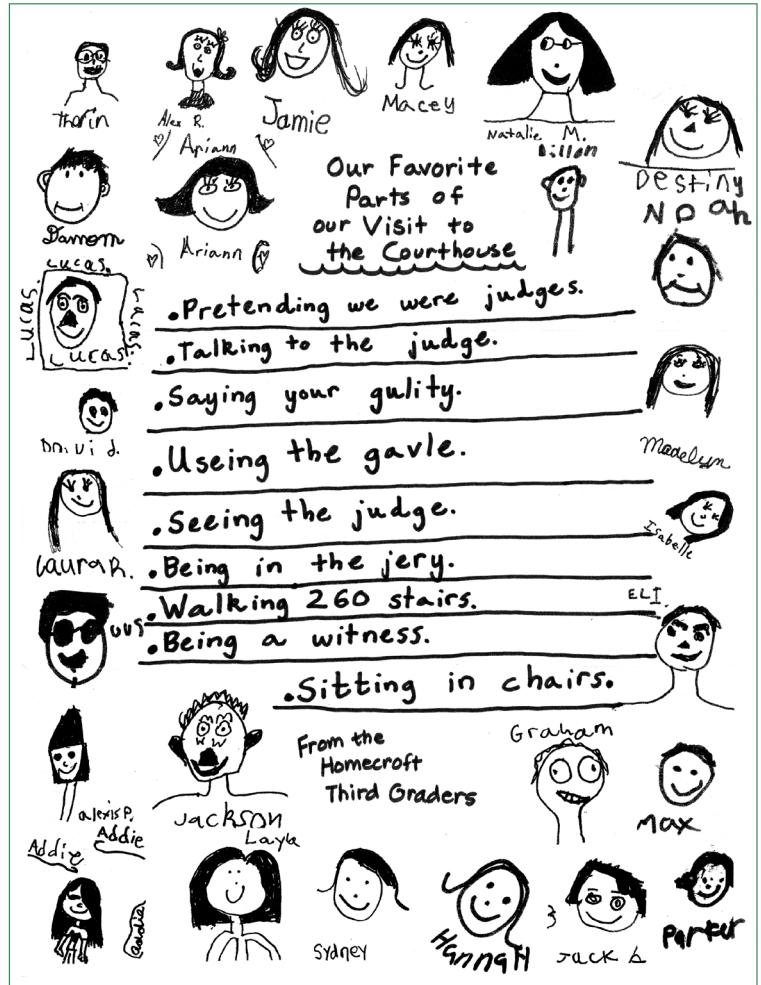 Thorin
Alex R.
Jamie
Macey
Natalie M.
Destiny
Ariann
Dillon
Noah
Our Favorite
Parts of
our Visit to
the Courthouse
Ariann
Lucas.
Lucas.
Lucas.
Lucas.
.Pretending we were judges.
.Talking to the judge.
.Saying your gulity.
.Useing the gavle.
.Seeing the judge.
.Being in the jery.
.Walking 260 stairs.
.Being a witness.
.Sitting in chairs.
David J.
Madelyn
Laura R.
Isabelle
ELI.
From the
Homecroft
Third Graders
Graham
Max
alexis P.
Addie
Addie
Addie
Jackson
Layla
Sydney
Hannah
Jack b
Parker